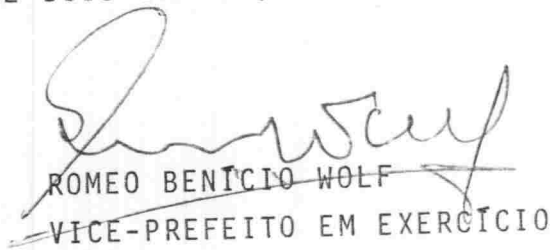 ROMEO BENÍCIO WOLF
-VICE-PREFEITO EM EXERCÍCIO